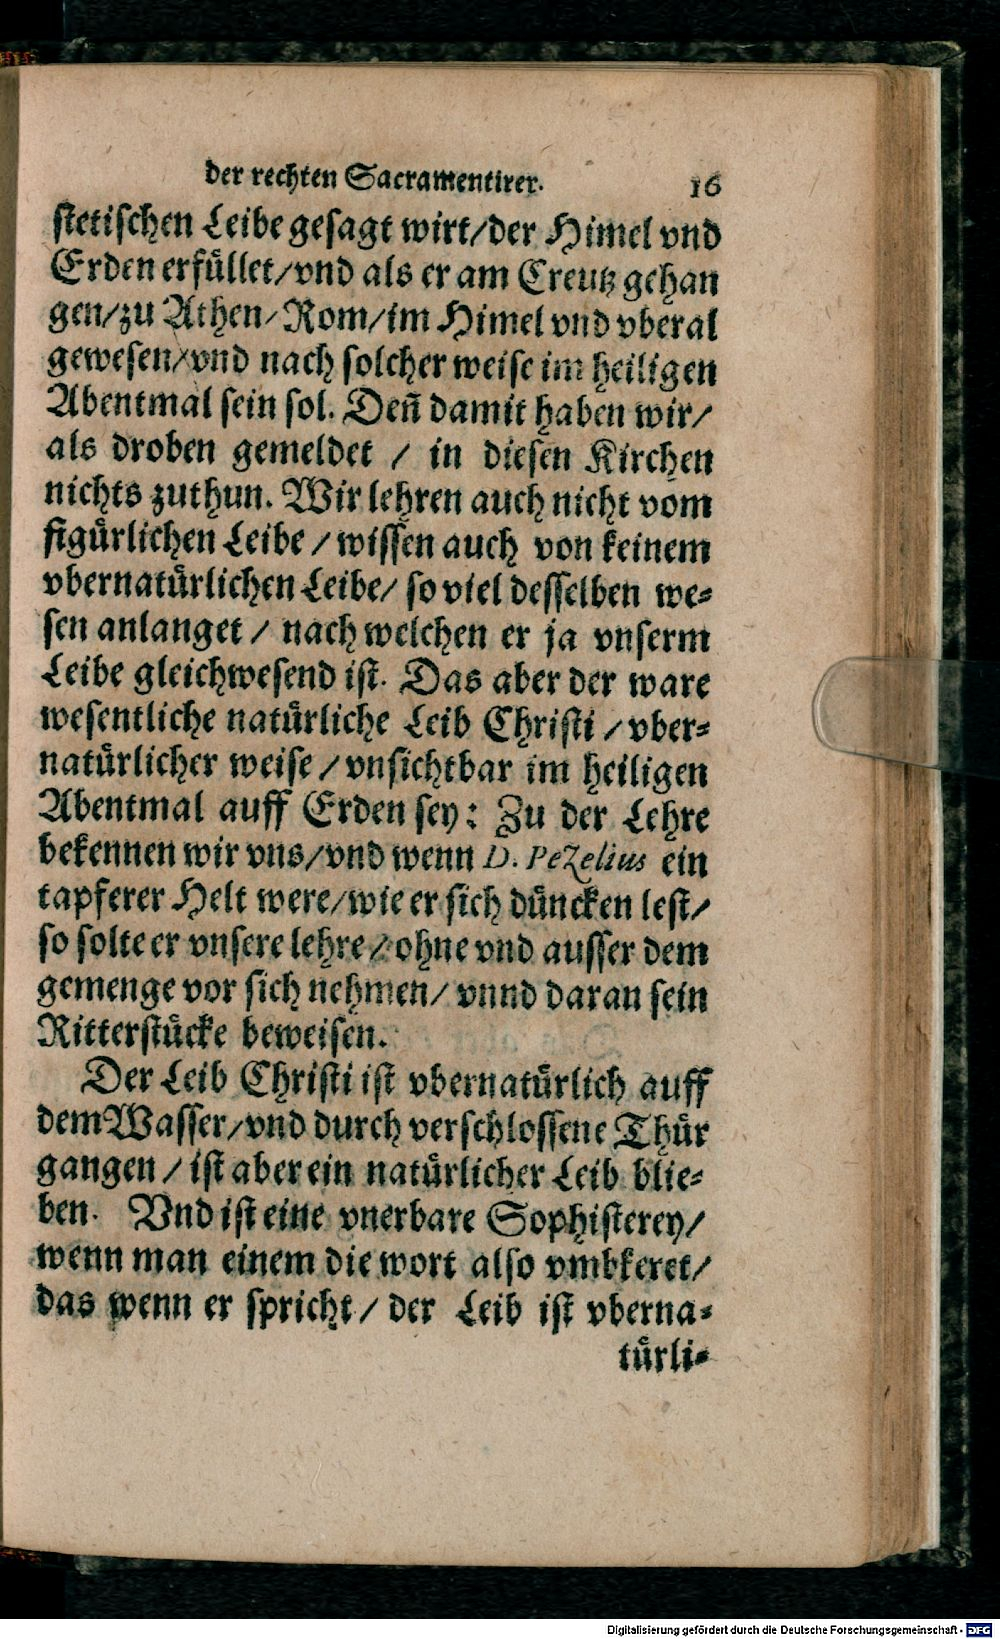 der rechten Sacramentirer. 16
stetischen Leibe gesagt wirt/der Himel vnd
Erden erfüllet/vnd als er am Creutz gehan
gen/zu Athen/Rom/im Himel vnd vberal
gewesen/vnd nach solcher weise im heiligen
Abentmal sein sol. Deñ damit haben wir/
als droben gemeldet / in diesen Kirchen
nichts zuthun. Wir lehren auch nicht vom
figürlichen Leibe / wissen auch von keinem
vbernatürlichen Leibe/ so viel desselben we-
sen anlanget / nach welchen er ja vnserm
Leibe gleichwesend ist. Das aber der ware
wesentliche natürliche Leib Christi / vber-
natürlicher weise / vnsichtbar im heiligen
Abentmal auff Erden sey: Zu der Lehre
bekennen wir vns/vnd wenn D. Pezelius ein
tapferer Helt were/wie er sich düncken lest/
so solte er vnsere lehre / ohne vnd ausser dem
gemenge vor sich nehmen/ vnnd daran sein
Ritterstücke beweisen.
Der Leib Christi ist vbernatürlich auff
dem Wasser/vnd durch verschlossene Thür
gangen / ist aber ein natürlicher Leib blie-
ben. Vnd ist eine vnerbare Sophisterey/
wenn man einem die wort also vmbkeret/
das wenn er spricht / der Leib ist vberna-
türli-
Digitalisierung gefördert durch die Deutsche Forschungsgemeinschaft - DFG